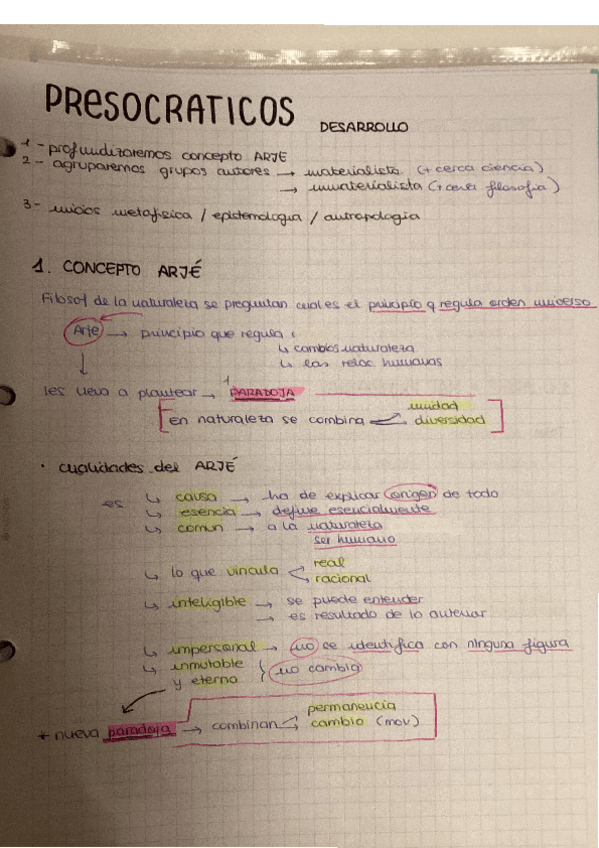 PRESOCRATICOS DESARROLLO
1 - profundizaremos concepto ARJE
2 - agruparemos grupos autores → materialista (+ cerca ciencia)
→ inmaterialista (+ cerca filosofia)
3 - inicios metafisica / epistemologia / antropologia
1. CONCEPTO ARJÉ
Filosof de la naturaleza se preguntan cual es el principio q regula orden universo
Arje → principio que regula:
↳ cambios naturaleza
↳ las relac humanas
↓
les lleva a plantear → 1 PARADOJA
[En naturaleza se combina unidad
diversidad]
· cualidades del ARJÉ
es ↳ causa → ha de explicar origen de todo
↳ esencia → define esencialmente
↳ comun → a la naturaleza
ser humano
↳ lo que vincula < real
racional
↳ inteligible → se puede entender
→ es resultado de lo anterior
↳ impersonal → no se identifica con ninguna figura
↳ inmutable
y eterno } no cambia
* nueva paradoja → combinan permanencia
cambio (mov)